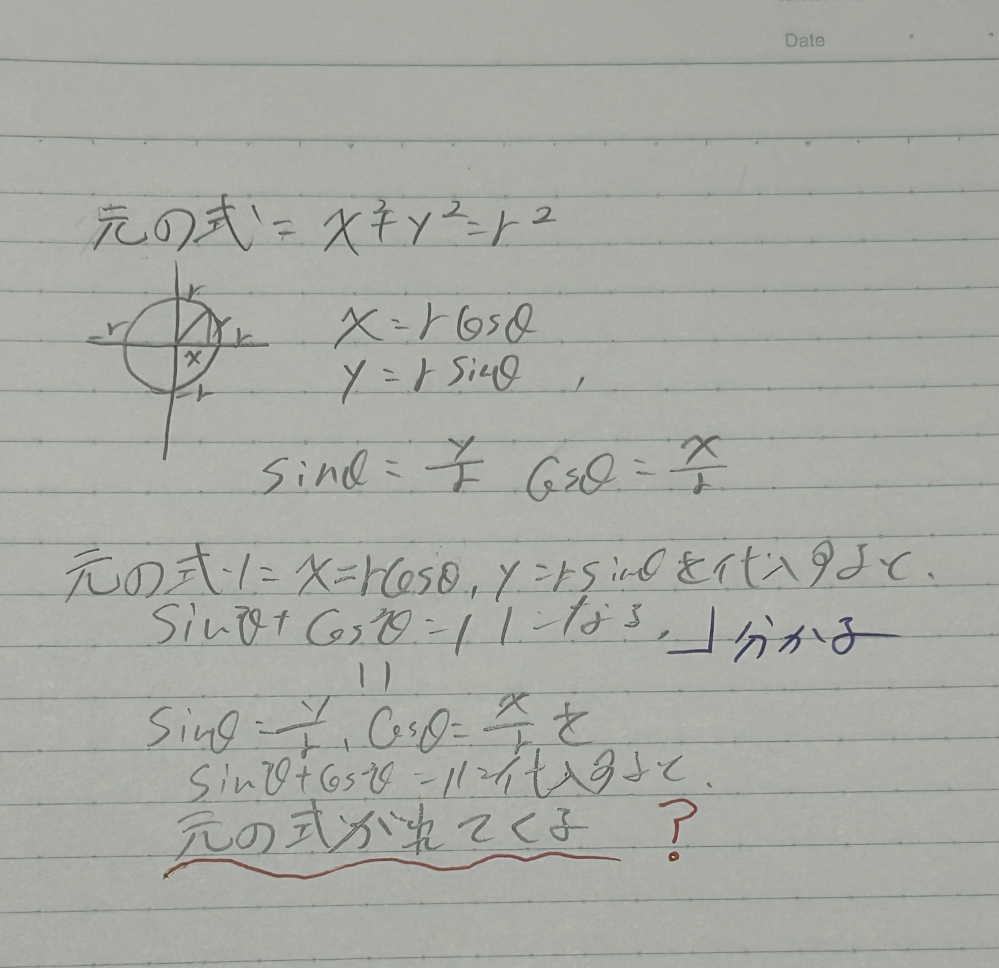 Date
元の式 = x²+y²=r²
r
-r y r
x
-r
x = r cosθ
y = r sinθ ,
sinθ = y/r cosθ = x/r
元の式に x=rcosθ, y=rsinθを代入すると.
sin²θ + cos²θ = 1 になる, 」分かる
||
sinθ = y/r, cosθ = x/r を
sin²θ+cos²θ = 1に代入すると.
元の式が出てくる ?